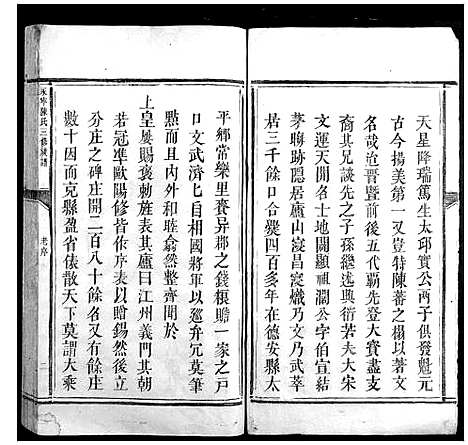 天星降瑞篤生太邱實公兩子俱發魁元
古今揚美第一又豈特陳蕃之榻以文
名哉迨晋暨前後五代覇先登大寳盡支
裔其兄談先之子孫繼述興衛若夫大宋
文運天開名士地闢顯祖瀾公字伯宣
茅聯跡隱居廬山嵩寔熾乃文乃武萃
居三千餘口合爨四百多年在德安縣太
平鄉常樂里賫异郡之錢糧贍一家之戸
口文武濟匕自相國將軍以廵弁冗莫筆
㸃而且內外和睦翕然整齊聞於
上皇屢賜褒勅旌表其廬曰江州義門其朝
若冠準歐陽修皆作文以贈錫然後立
分庄之碑庄開二百八十餘名又有餘庄
數十因而克縣盈省俵散天下莫謂大乘
永寧陳氏三修族譜
老序
二